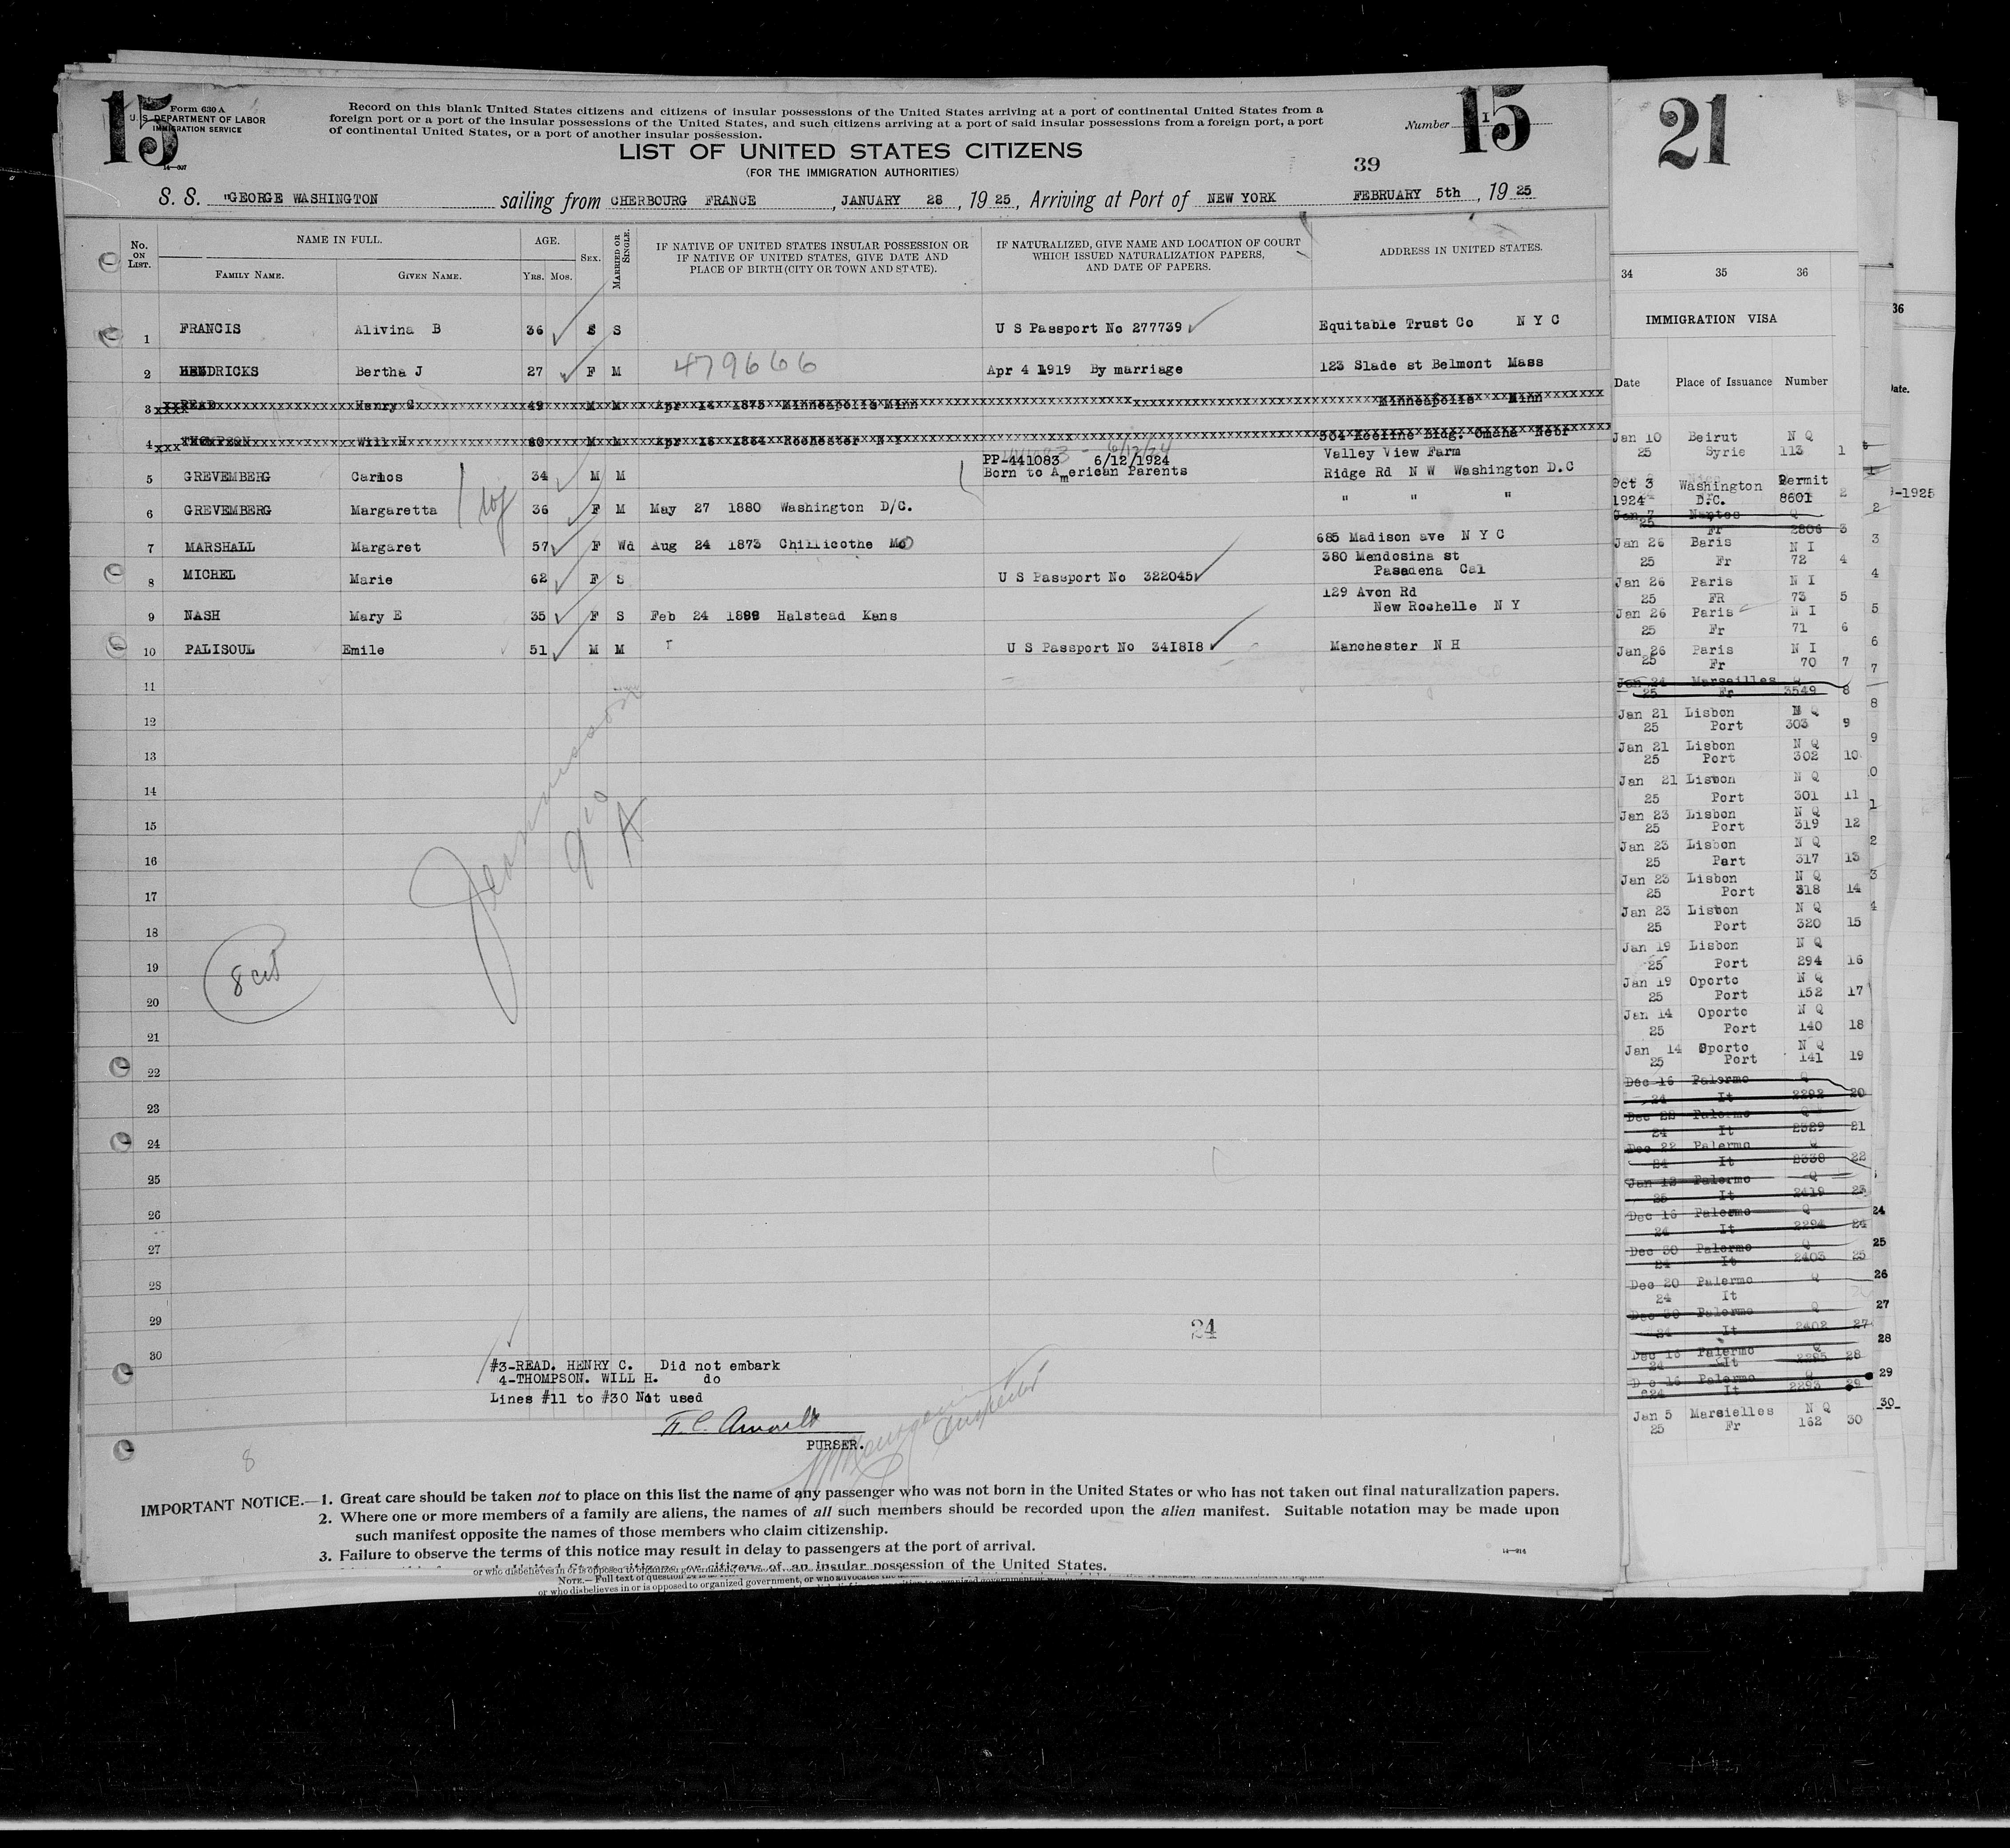 15
Form 630 A
U. S. DEPARTMENT OF LABOR
IMMIGRATION SERVICE
14—807
Record on this blank United States citizens and citizens of insular possessions of the United States arriving at a port of continental United States from a
foreign port or a port of the insular possessions of the United States, and such citizens arriving at a port of said insular possessions from a foreign port, a port
of continental United States, or a port of another insular possession.
Number I 15
LIST OF UNITED STATES CITIZENS
(FOR THE IMMIGRATION AUTHORITIES)
39
S. S. "GEORGE WASHINGTON sailing from CHERBOURG FRANCE, JANUARY 28, 1925, Arriving at Port of NEW YORK FEBRUARY 5th, 1925
No. ON LIST. NAME IN FULL. AGE. SEX. MARRIED OR SINGLE. IF NATIVE OF UNITED STATES INSULAR POSSESSION OR IF NATIVE OF UNITED STATES, GIVE DATE AND PLACE OF BIRTH (CITY OR TOWN AND STATE). IF NATURALIZED, GIVE NAME AND LOCATION OF COURT WHICH ISSUED NATURALIZATION PAPERS, AND DATE OF PAPERS. ADDRESS IN UNITED STATES.
FAMILY NAME. GIVEN NAME. YRS. MOS.
1 FRANCIS Alivina B 36 S S U S Passport No 277739 Equitable Trust Co N Y C
2 HENDRICKS Bertha J 27 F M 479666 Apr 4 1919 By marriage 123 Slade st Belmont Mass
3 READ Henry C 49 M M Apr 14 1875 Minneapolis Minn Minneapolis Minn
4 THOMPSON Will H 60 M M Apr 16 1864 Rochester N Y 504 Keeline Bldg. Omaha Nebr
PP-441083 6/12/1924 Valley View Farm
5 GREVEMBERG Carlos 34 M M Born to American Parents Ridge Rd N W Washington D.C
6 GREVEMBERG Margaretta 36 F M May 27 1880 Washington D/C. " " "
7 MARSHALL Margaret 57 F Wd Aug 24 1873 Chillicothe Mo 685 Madison ave N Y C
380 Mendosina st
8 MICHEL Marie 62 F S U S Passport No 322045 Pasadena Cal
129 Avon Rd
9 NASH Mary E 35 F S Feb 24 1889 Halstead Kans New Rochelle N Y
10 PALISOUL Emile 51 M M U S Passport No 341818 Manchester N H
11
12
13
14
15
16
17
18
19
20
21
22
23
24
25
26
27
28
29
30
8 cit
24
#3-READ. HENRY C. Did not embark
4-THOMPSON. WILL H. do
Lines #11 to #30 Not used
PURSER.
Inspector
8
IMPORTANT NOTICE.—1. Great care should be taken not to place on this list the name of any passenger who was not born in the United States or who has not taken out final naturalization papers.
2. Where one or more members of a family are aliens, the names of all such members should be recorded upon the alien manifest. Suitable notation may be made upon
such manifest opposite the names of those members who claim citizenship.
3. Failure to observe the terms of this notice may result in delay to passengers at the port of arrival.
14—214
United States citizens or citizens of an insular possession of the United States.
or who disbelieves in or is opposed to organized government, or who
NOTE.—Full text of question 24 is
or who disbelieves in or is opposed to organized government, or who advocates the
21
34 35 36
IMMIGRATION VISA
Date Place of Issuance Number
Jan 10 Beirut N Q
25 Syrie 113 1
Oct 3 Washington Permit
1924 D.C. 8601 2
Jan 7 Nantes Q
25 Fr 2806 3
Jan 26 Baris N I
25 Fr 72 4
Jan 26 Paris N I
25 FR 73 5
Jan 26 Paris N I
25 Fr 71 6
Jan 26 Paris N I
25 Fr 70 7
Jan 24 Marseilles Q
25 Fr 3549 8
Jan 21 Lisbon N Q
25 Port 303 9
Jan 21 Lisbon N Q
25 Port 302 10
Jan 21 Lisbon N Q
25 Port 301 11
Jan 23 Lisbon N Q
25 Port 319 12
Jan 23 Lisbon N Q
25 Port 317 13
Jan 23 Lisbon N Q
25 Port 318 14
Jan 23 Lisbon N Q
25 Port 320 15
Jan 19 Lisbon N Q
25 Port 294 16
Jan 19 Oporto N Q
25 Port 152 17
Jan 14 Oporto N Q
25 Port 140 18
Jan 14 Oporto N Q
25 Port 141 19
Dec 16 Palermo Q
24 It 2292 20
Dec 22 Palermo Q
24 It 2329 21
Dec 22 Palermo Q
24 It 2338 22
Jan 12 Palermo Q
25 It 2419 23
Dec 16 Palermo Q
24 It 2294 24
Dec 30 Palermo Q
24 It 2403 25
Dec 20 Palermo Q
24 It
Dec 30 Palermo Q
24 It 2402 27
Dec 16 Palermo Q
24 It 2295 28
D c 16 Palermo Q
e24 It 2293 29
Jan 5 Marsielles N Q
25 Fr 162 30
36
Date.
-1925
1
2
3
4
5
6
7
8
9
0
1
2
3
4
24
25
26
27
28
29
30